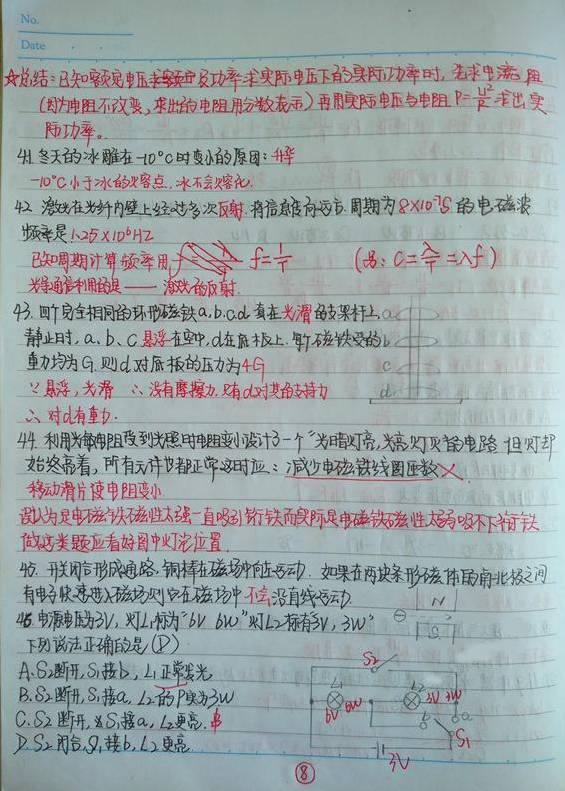 No.
Date
☆总结:已知额定电压及功率求实际电压下的实际功率时,先求电阻
(因为电阻不改变,求出的电阻用分数表示)再用实际电压与电阻 P=U²/R 求出实
际功率。
41.冬天的冰雕在-10°C时变小的原因:升华
-10°C小于冰的熔点,冰不会熔化.
42.激光在光纤内壁上经过多次反射.将信息传向远方.周期为8×10⁻⁷S的电磁波
频率是1.25×10⁶HZ
已知周期计算频率用 f=1/T (C=λ/T=λf)
光导通信利用的是——激光的反射.
43.四个完全相同的环形磁铁a.b.c.d 套在光滑的支架杆上
静止时,a、b、c悬浮在空中,d在底板上.每个磁铁受的
重力均为G.则d对底板的压力为4G
∵悬浮,光滑 ∴没有摩擦力.只有d对其的支持力
∴对d有重力.
a
b
c
d
44.利用光敏电阻受到光照时电阻变小设计了一个"光暗灯亮,光亮灯灭"的电路 但灯却
始终亮着,所有元件也都正常这时应:减少电磁铁线圈匝数×
移动滑片使电阻变小
误认为是电磁铁磁性太强一直吸引衔铁而实际是电磁铁磁性太弱吸不下衔铁
做这类题应看好图中灯泡位置.
45.开关闭合形成通路.铜棒在磁场中向左运动.如果在两块条形磁体的南北极之间
有电子快速进入磁场则它在磁场中不会沿直线运动.
N
S
46.电源电压为3V,灯L₁标为"6V 6W"灯L₂标有"3V,3W"
下列说法正确的是(D)
A.S₂断开,S₁接b,L₁正常发光
B.S₂断开,S₁接a,L₂的P实为3W
C.S₂断开,S₁接a,L₂更亮.串
D.S₂闭合,S₁接b,L₂更亮
S₂
L₁
L₂
6V 6W
3V 3W
a
b
S₁
3V
8